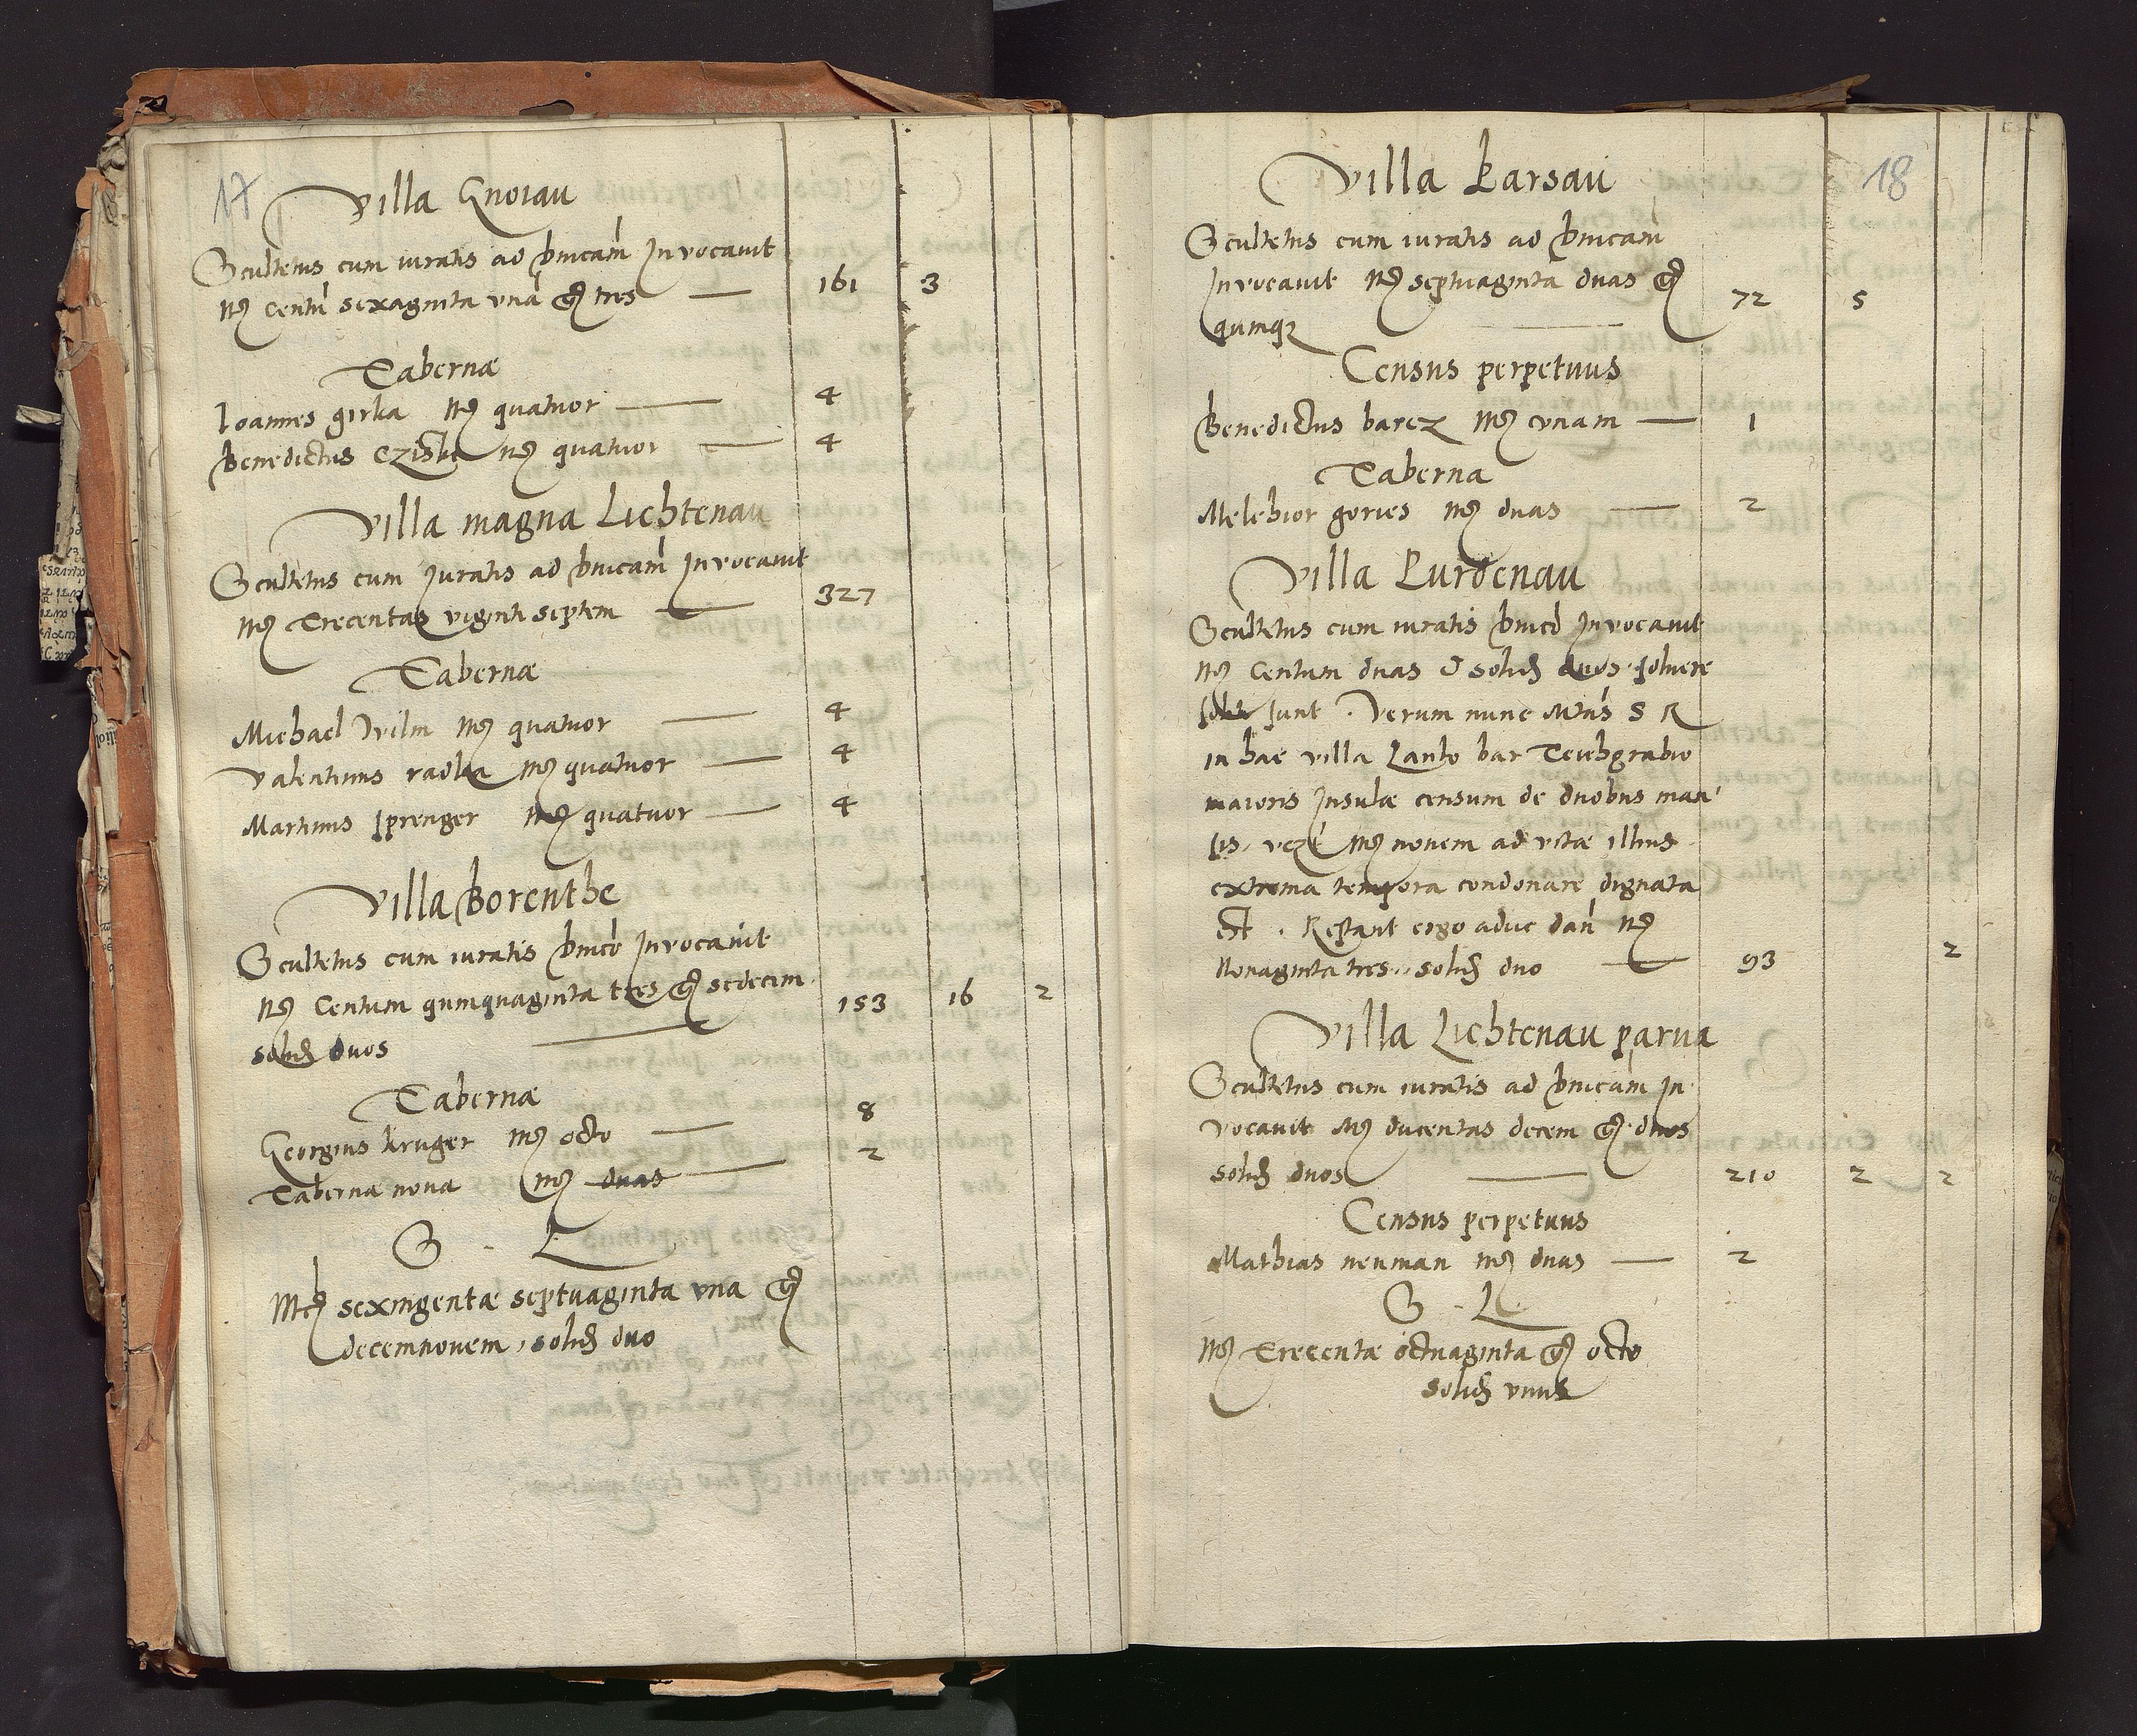 17
Villa Gnoiau
Scultetus cum iuratis ad dnicam Invocavit
Mr centu sexaginta una gr tres — 161 3
Tabernæ
Ioannes girka Mr quatuor — 4
Benedictus Cziske Mr quatuor — 4
Villa magna Lichtenau
Scultetus cum Iuratis ad dnicam Invocavit
Mr Trecentas viginti septem — 327
Tabernæ
Michael Wilm Mr quatuor — 4
Valentinus radka Mr quatuor — 4
Martinus sprenger Mr quatuor — 4
Villa Borenthe
Scultetus cum iuratis dnica Invocavit
Mr Centum quinquaginta tres gr sedecim
solid duos — 153 16 2
Tabernæ
Georgius kruger Mr octo — 8
Taberna nova Mr duas — 2
S - L
Mr sexingentæ septuaginta una gr
decemnovem, solid duo
18
Villa Karsau
Scultetus cum iuratis ad dnicam
Invocavit Mr septuaginta duas gr
quinq — 72 5
Census perpetuus
Benedictus barcz Mr unam — 1
Taberna
Melchior gories Mr duas — 2
Villa Kurdenau
Scultetus cum iuratis dnica Invocavit
Mr Centum duas & solid duos solvere
sunt. Verum nunc Mtas S R
in hac villa Lanko bar Teichgrabio
maioris Insulæ censum de duobus man
sis, Mr novem ad vitæ illius
extrema tempora condonare dignata
est. Restant ergo aduc dan Mr
Nonaginta tres, solid duo — 93 2
Villa Lichtenau parva
Scultetus cum iuratis ad dnicam In
vocavit Mr ducentas decem gr duos
solid duos — 210 2 2
Census perpetuus
Mathias neuman Mr duas — 2
S - L
Mr Trecentæ octuaginta gr octo
solid unus